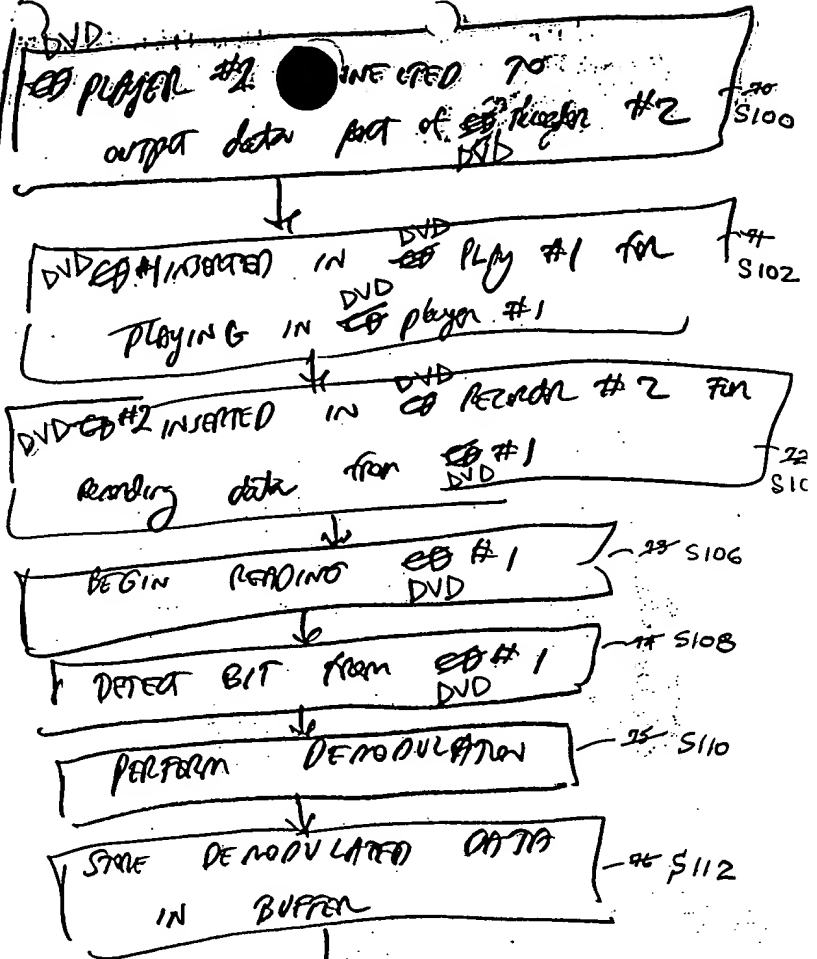 DVD
PLAYER #2 NECTED TO
output data port of recorder #2
DVD
S100
DVD #1 INSERTED IN DVD PLAY #1 for
S102
PLAYING IN DVD player #1
DVD #2 INSERTED IN DVD RECORDR #2 For
Recording data from #1
DVD
S10
BEGIN READING #1
DVD
S106
DETECT BIT from #1
DVD
S108
PERFORM DEMODULATION
S110
STORE DEMODULATED DATA
IN BUFFER
S112